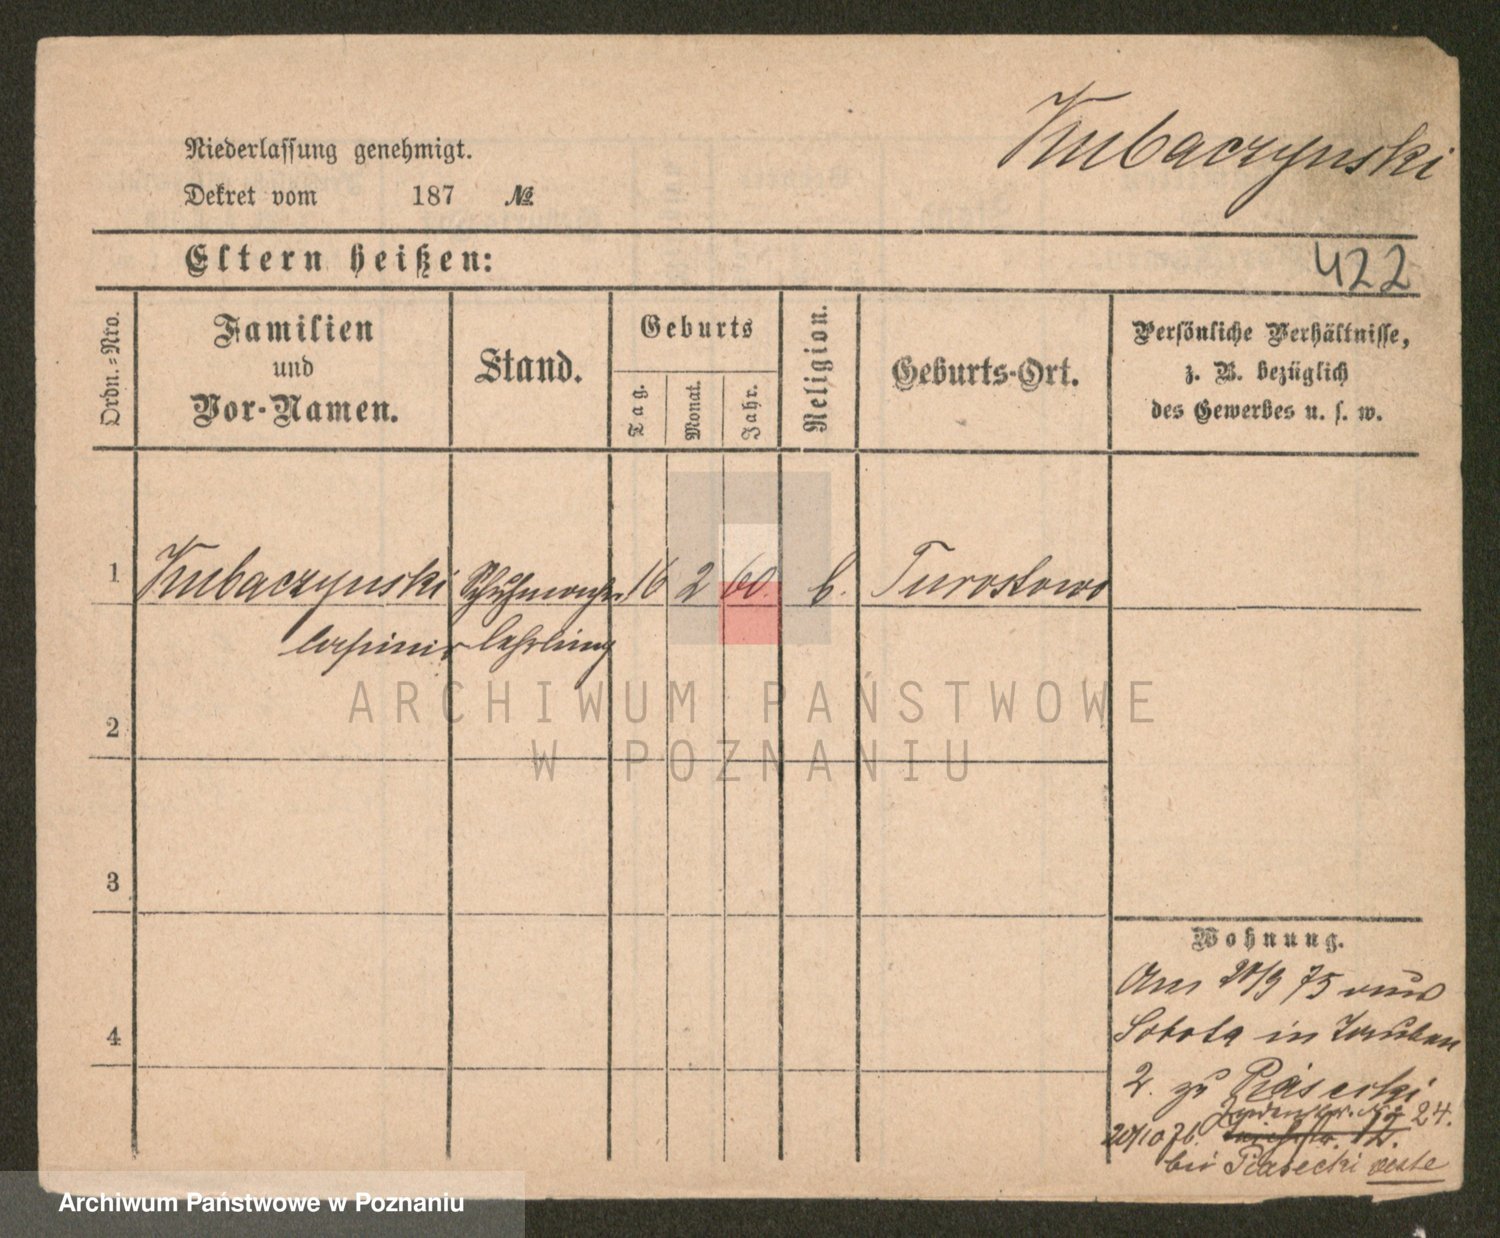 Kubaczynski
Niederlassung genehmigt.
Dekret vom 187 №
Eltern heißen:
422
Ordn.-Nro.
Familien
und
Vor-Namen.
Stand.
Geburts
Tag.
Monat.
Jahr.
Religion.
Geburts-Ort.
Persönliche Verhältnisse,
z. B. bezüglich
des Gewerbes u. s. w.
1 Kubaczynski Schuhmacher 16 2 60. k. Turostowo
Casimir lehrling
ARCHIWUM PAŃSTWOWE
W POZNANIU
2
3
4
Wohnung.
Am 20/9 75 aus
Sobota in Tauben
2. zu Piasecki
24.
20/10 76. 12.
bei Piasecki
Archiwum Państwowe w Poznaniu